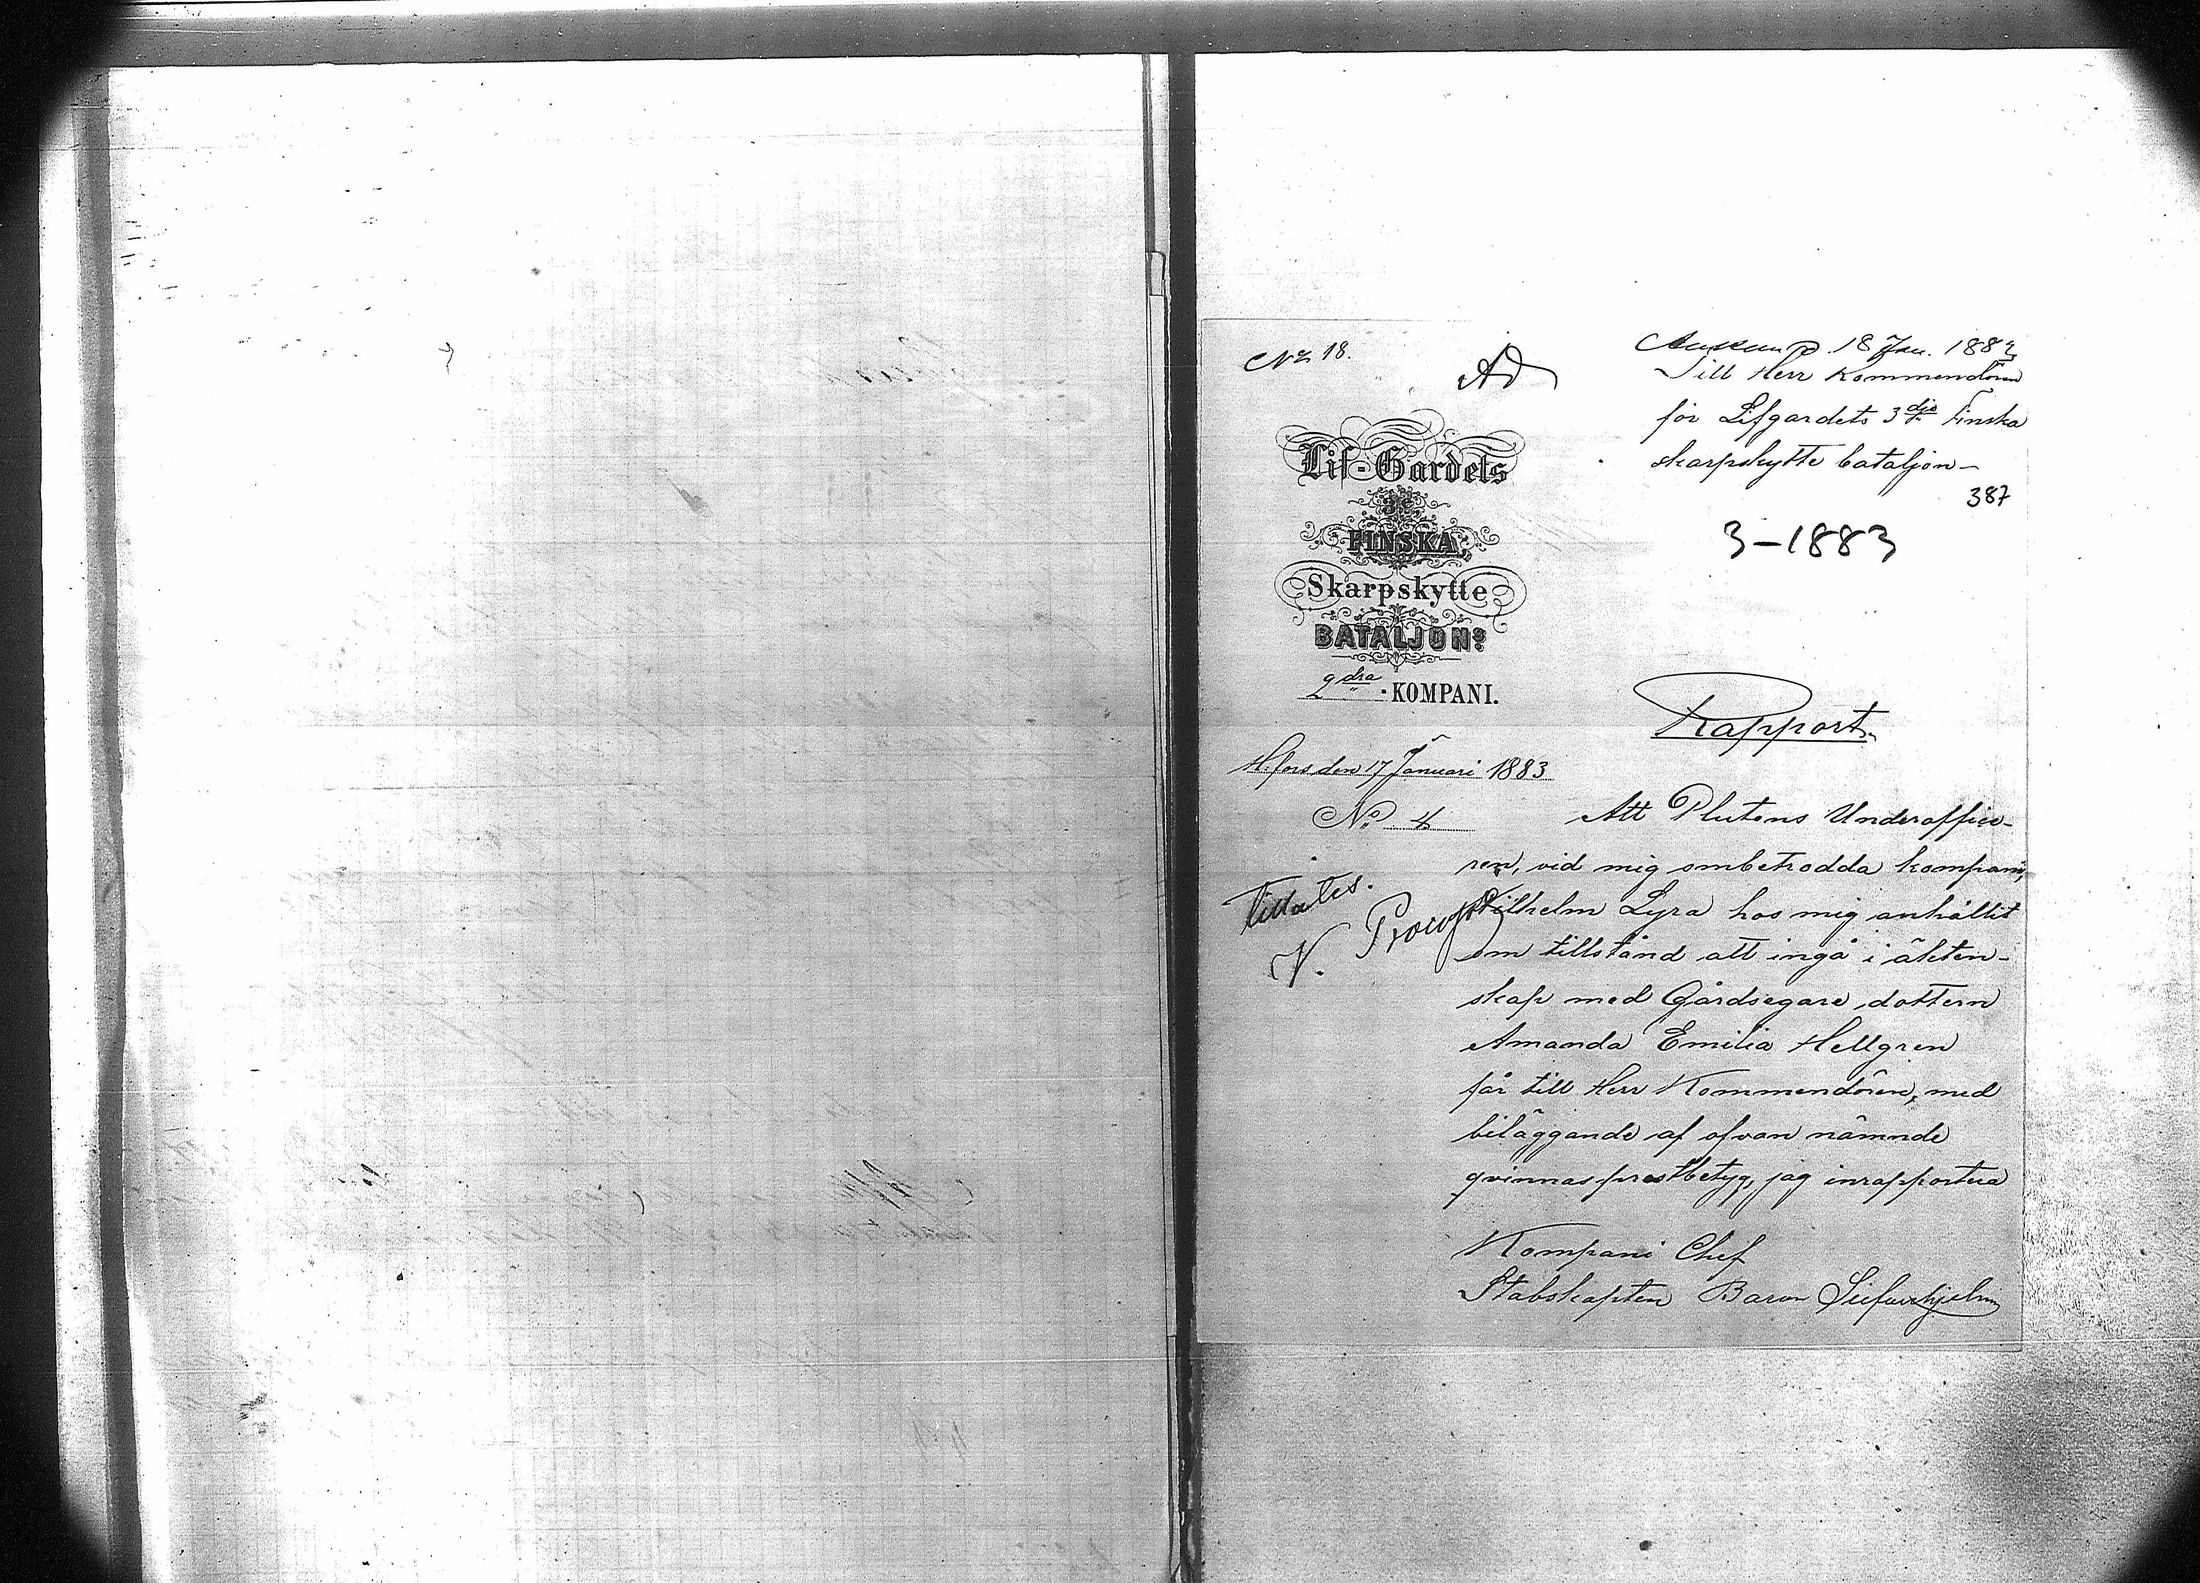 No 18.
Ad
18 Jan. 1883
Till Herr Kommendören
för Lifgardets 3dje Finska
skarpskytte bataljon—
387
3-1883
Lif-Gardets
3:e,
FINSKA,
Skarpskytte
BATALJONs
2dra - KOMPANI.
Rapport.
H:fors den 17 Januari 1883
No 4
Att Plutons Underoffice-
ren, vid mig ombetrodda kompani,
Wilhelm Lyra hos mig anhållit
om tillstånd att ingå i äkten-
skap med Gårdsegare dottern
Amanda Emilia Hellgren
får till Herr Kommendören, med
biläggande af ofvan nämnde
qvinnas prestbetyg, jag inrapportera
Tillåtes.
V.
Kompani Chef
Stabskapten Baron